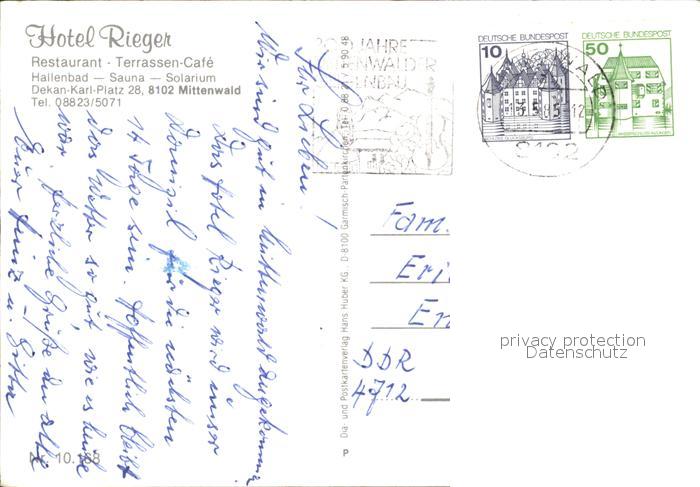 Hotel Rieger
Restaurant - Terrassen-Café
Hallenbad — Sauna — Solarium
Dekan-Karl-Platz 28, 8102 Mittenwald
Tel. 08823/5071
Ihr Lieben!
Wir sind gut in Mittenwald angekommen.
Das Hotel Rieger wird unser
Domizil für die nächsten
14 Tage sein. Hoffentlich bleibt
das Wetter so gut, wie es heute
war. Herzliche Grüße an alle
Euer Heinz u.
Nr. 10.168
JAHRE
Dia- und Postkartenverlag Hans Huber KG, D-8100 Garmisch-Partenkirchen, Tel.
P
DEUTSCHE BUNDESPOST
10
DEUTSCHE BUNDESPOST
50
8102
Fam.
Eri
DDR
4712
privacy protection
Datenschutz